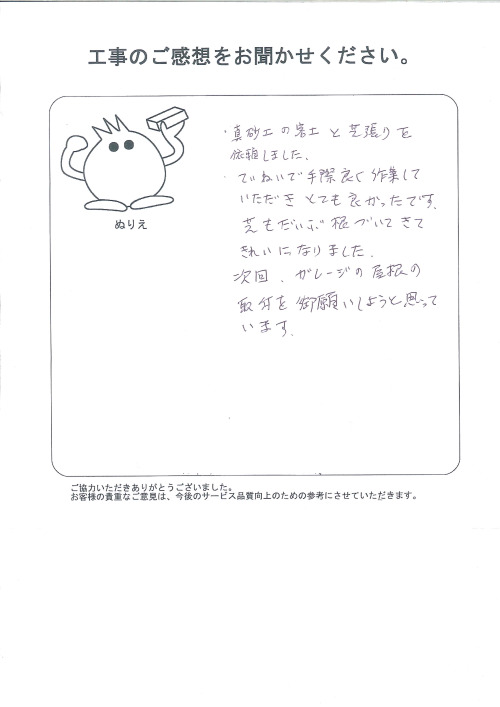 工事のご感想をお聞かせください。
ぬりえ
・真砂土の客土と芝張りを
依頼しました。
・ていねいで手際良く作業して
いただきとても良かったです。
芝もだいぶ根づいてきて
きれいになりました。
次回、ガレージの屋根の
取付を御願いしようと思って
います。
ご協力いただきありがとうございました。
お客様の貴重なご意見は、今後のサービス品質向上のための参考にさせていただきます。